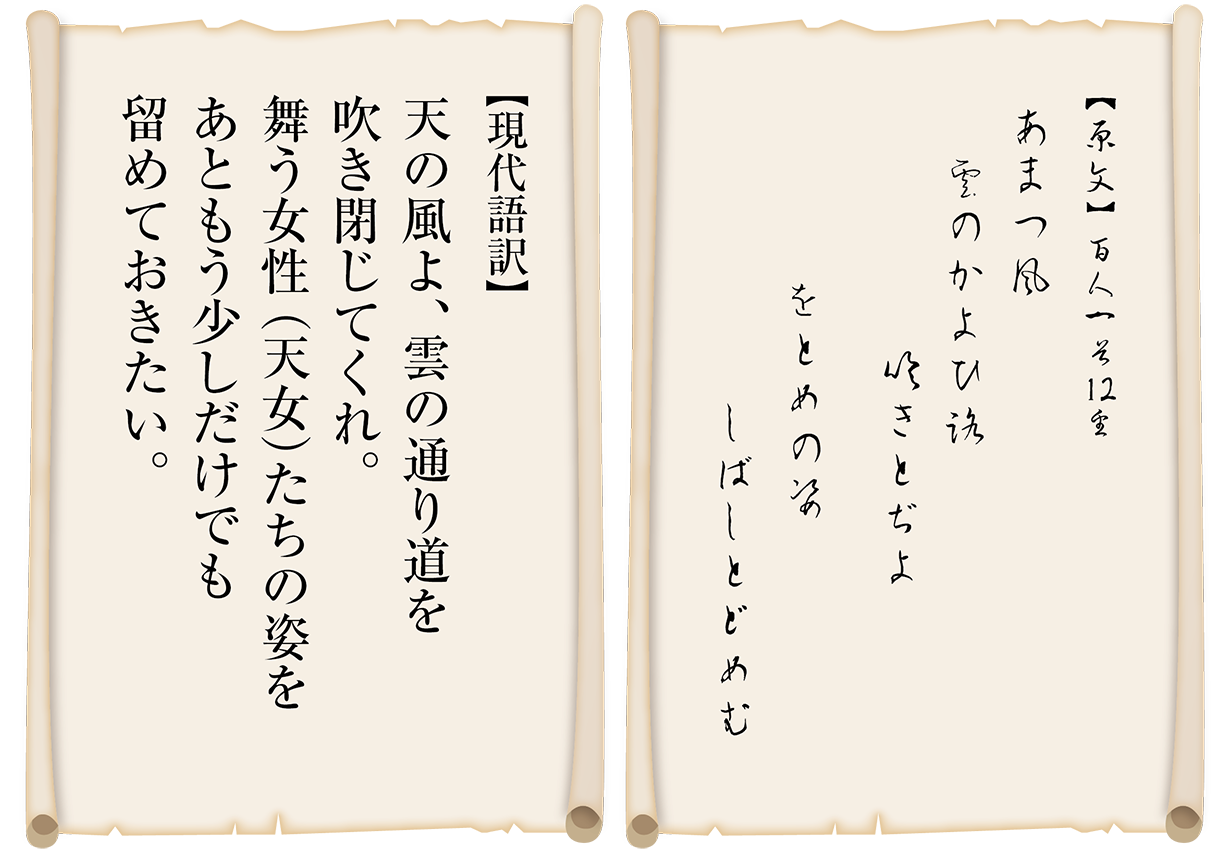 【原文】百人一首12番
あまつ風
雲のかよひ路
吹きとぢよ
をとめの姿
しばしとどめむ
【現代語訳】
天の風よ、雲の通り道を
吹き閉じてくれ。
舞う女性（天女）たちの姿を
あともう少しだけでも
留めておきたい。